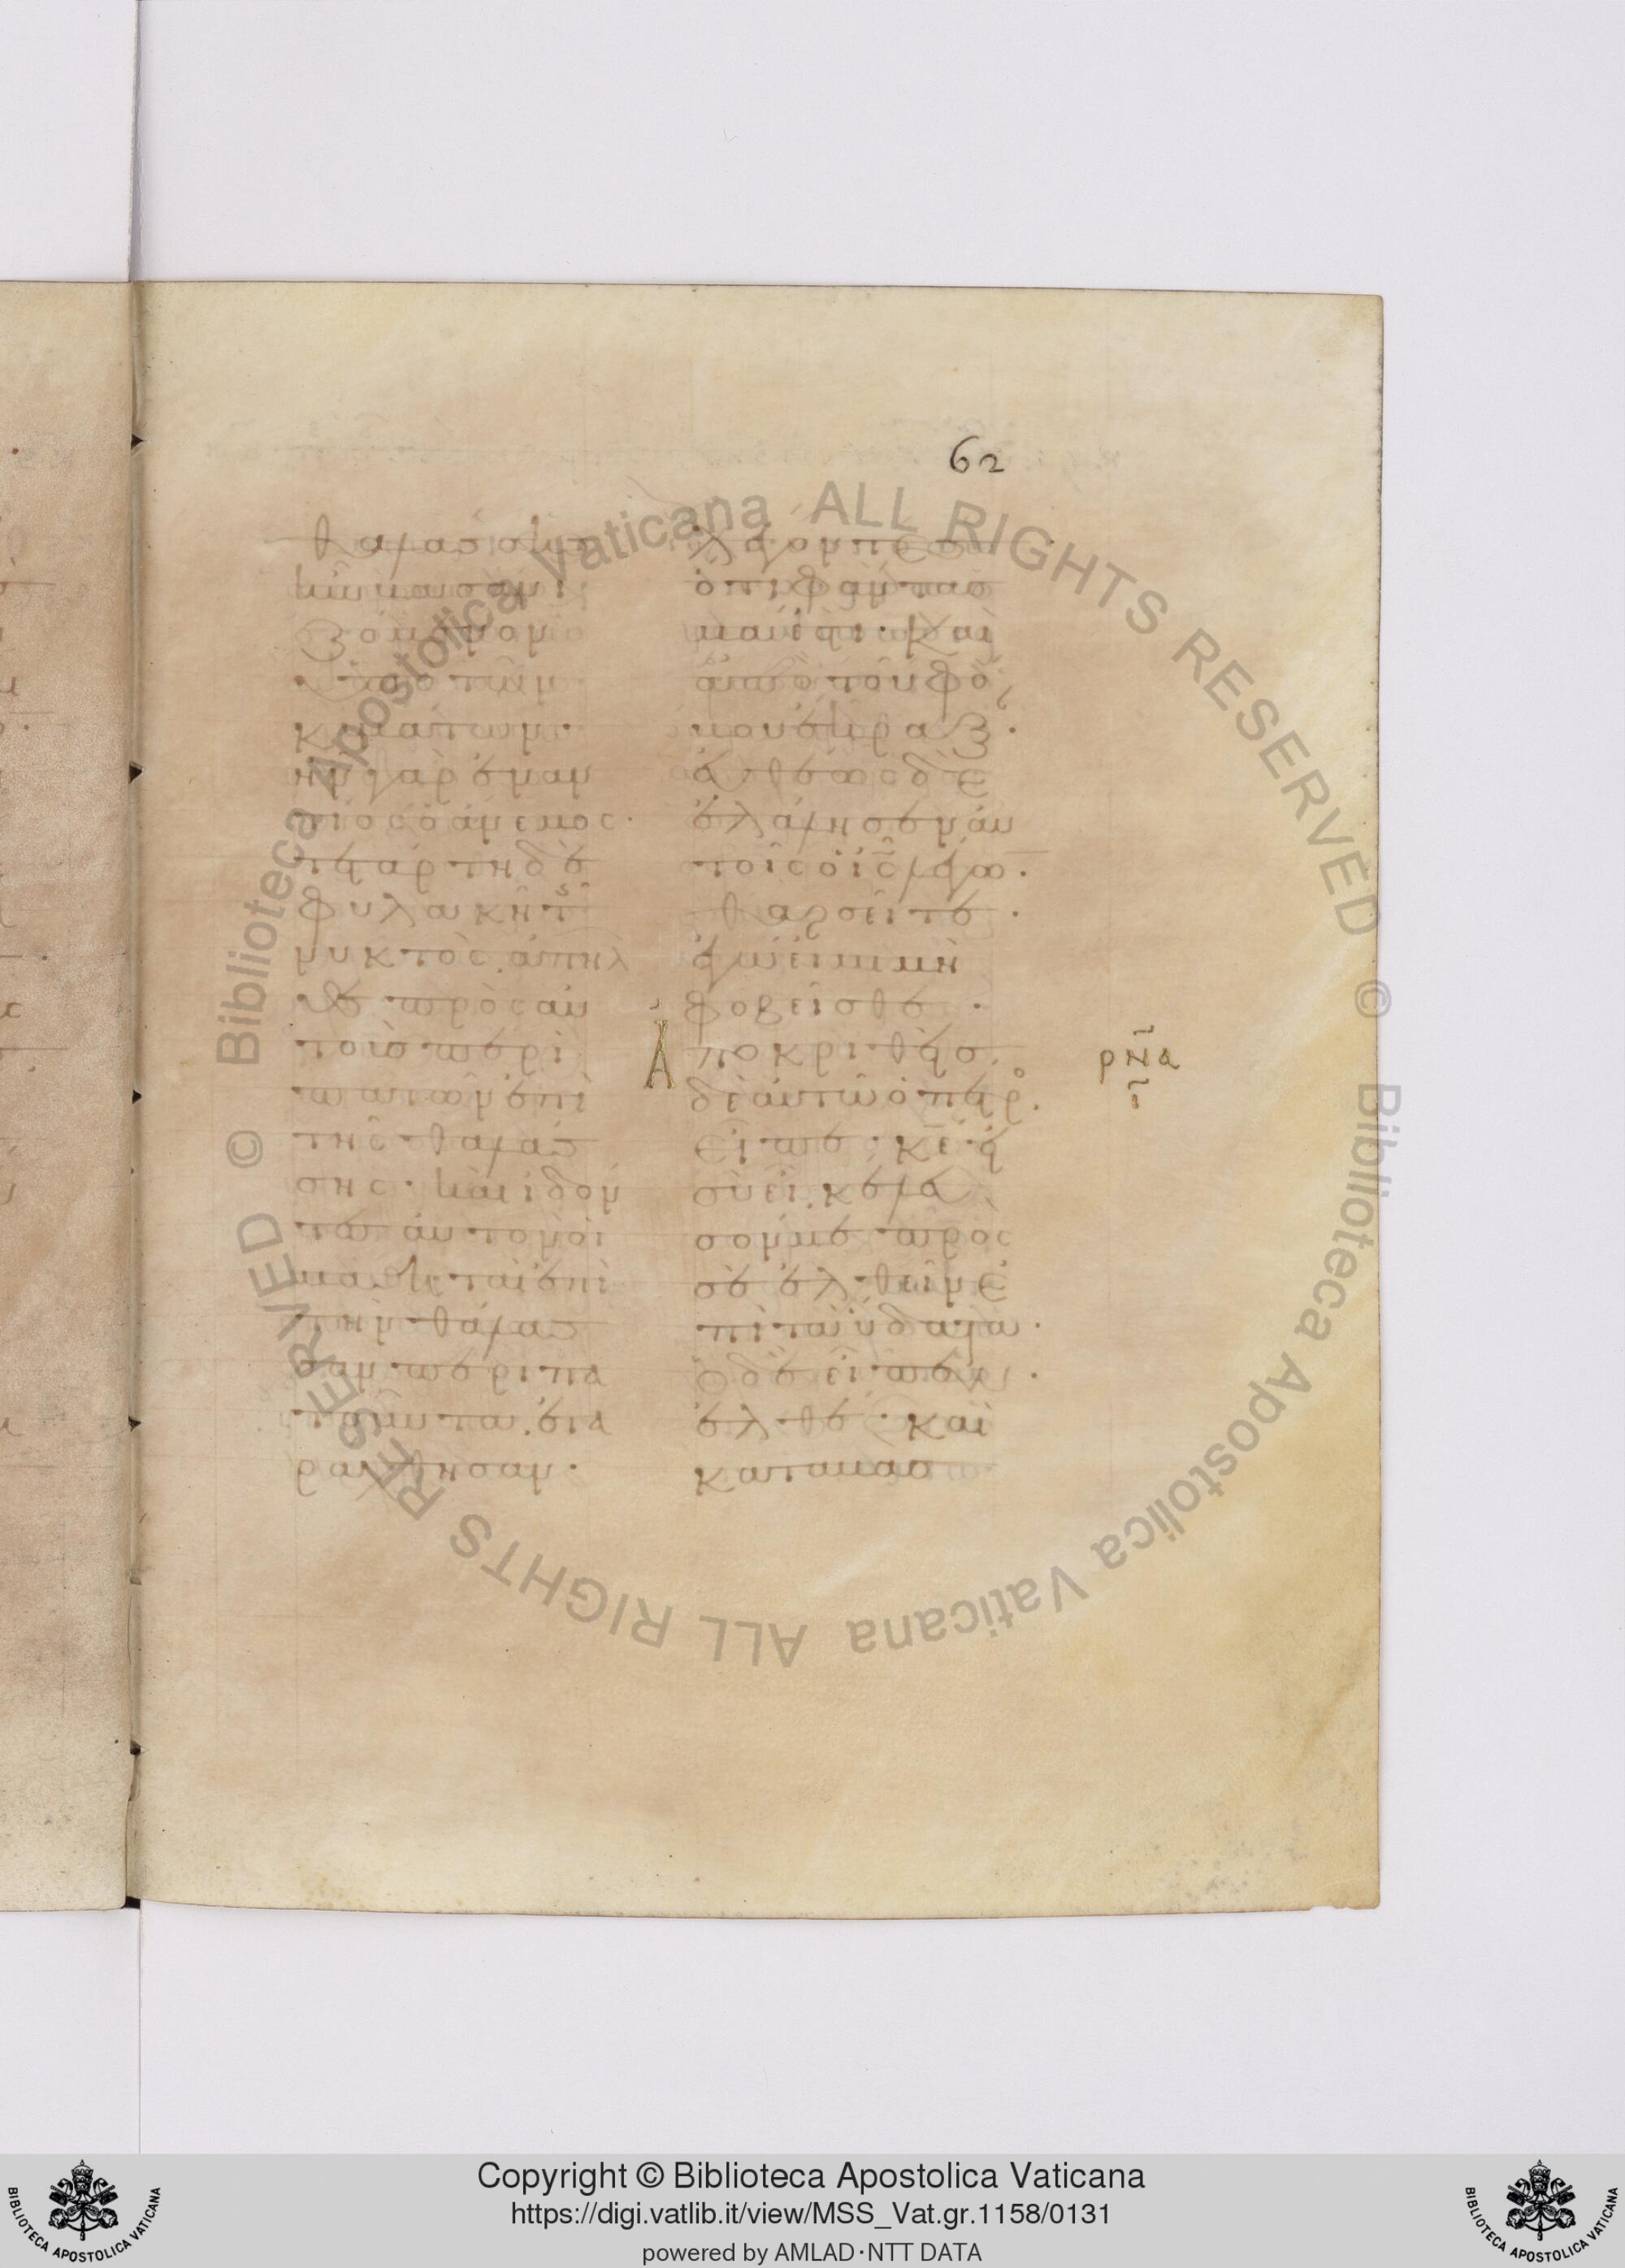 θαλάσσης
ἦν βασανι
ζόμενον
ὑπὸ τῶν
κυμάτων·
ἦν γὰρ ἐναν
τίος ὁ ἄνεμος·
τετάρτη δὲ
φυλακῆ τῆς
νυκτὸς ἀπῆλ
θε πρὸς αὐ
τοὺς περι
πατῶν ἐπὶ
τῆς θαλάσ
σης· καὶ ἰδόν
τες αὐτὸν οἱ
μαθηταὶ ἐπὶ
τὴν θάλασ
σαν περιπα
τοῦντα ἐτα
ράχθησαν·
62
λέγοντες
ὅτι φάντασ
μα ἐστι· καὶ
ἀπὸ τοῦ φό
βου ἔκραξαν·
εὐθέως δὲ
ἐλάλησεν αὐ
τοῖς ὁ ἰς̄ λέγω̄·
θαρσεῖτε·
ἐγώ εἰμι μὴ
φοβεῖσθε·
Ἀποκριθεὶς
δὲ αὐτῶ ὁ πέτρο·
εἶπε· κε̄ εἰ
σὺ εἶ κέλευ
σόν με πρός
σε ἐλθεῖν ἐ
πὶ τὰ ὕδατα·
ὁ δὲ εἶπεν·
ἐλθέ· καὶ
καταβὰς
ρν̄α
ῑ
Copyright © Biblioteca Apostolica Vaticana
https://digi.vatlib.it/view/MSS_Vat.gr.1158/0131
powered by AMLAD·NTT DATA
BIBLIOTECA APOSTOLICA VATICANA
BIBLIOTECA APOSTOLICA VATICANA
© Biblioteca Apostolica Vaticana ALL RIGHTS RESERVED © Biblioteca Apostolica Vaticana ALL RIGHTS RESERVED